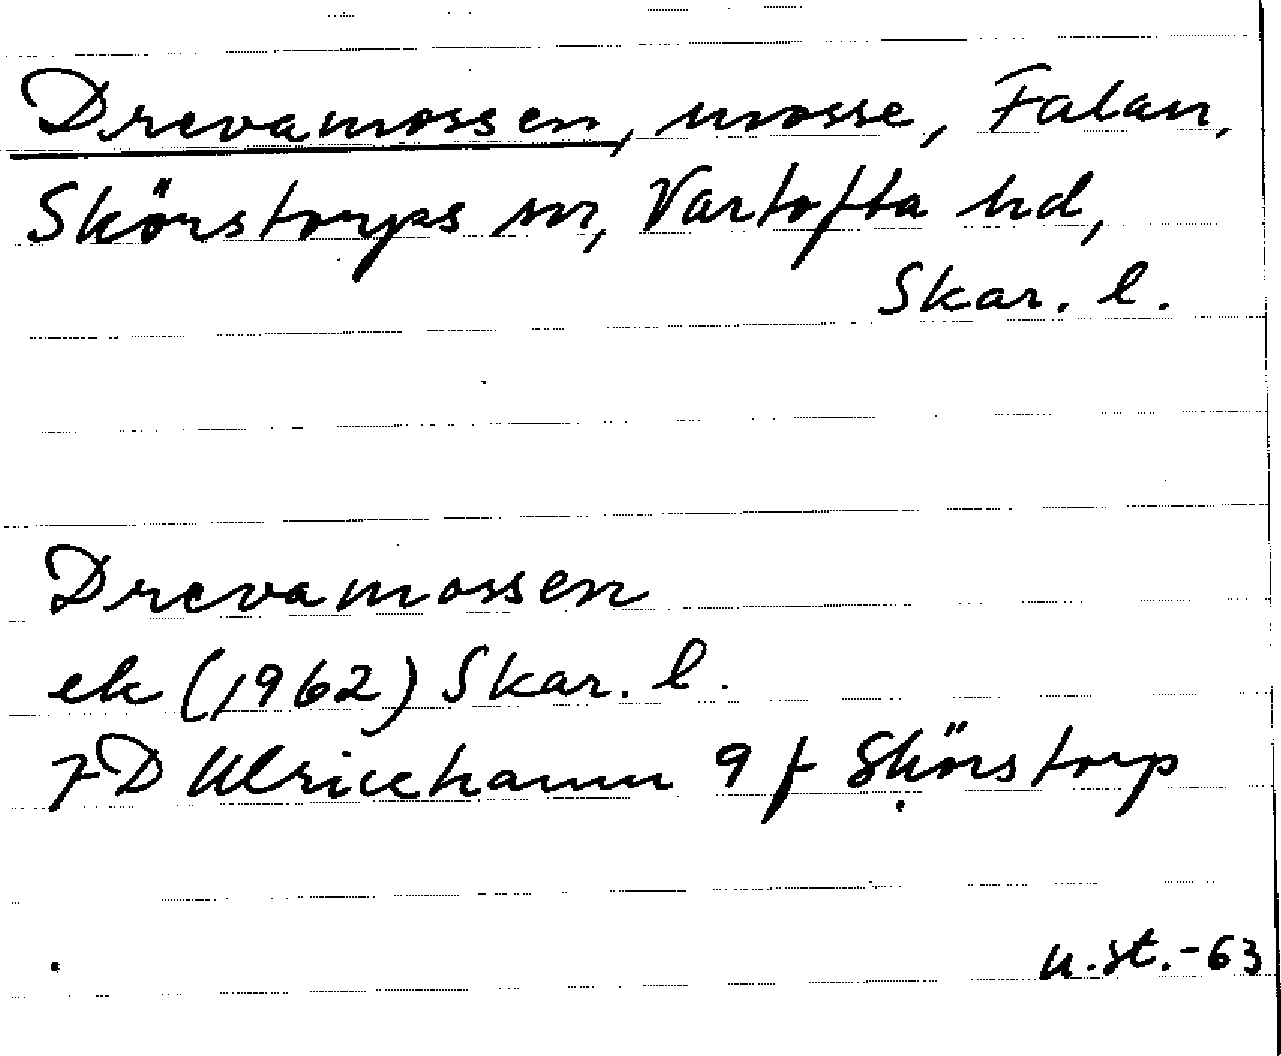 Drevamossen, mosse, Falan,
Skörstorps sn, Vartofta hd,
Skar. l.
Drevamossen
ek (1962) Skar. l.
7D Ulricehamn 9 f Skörstorp
u.st.-63